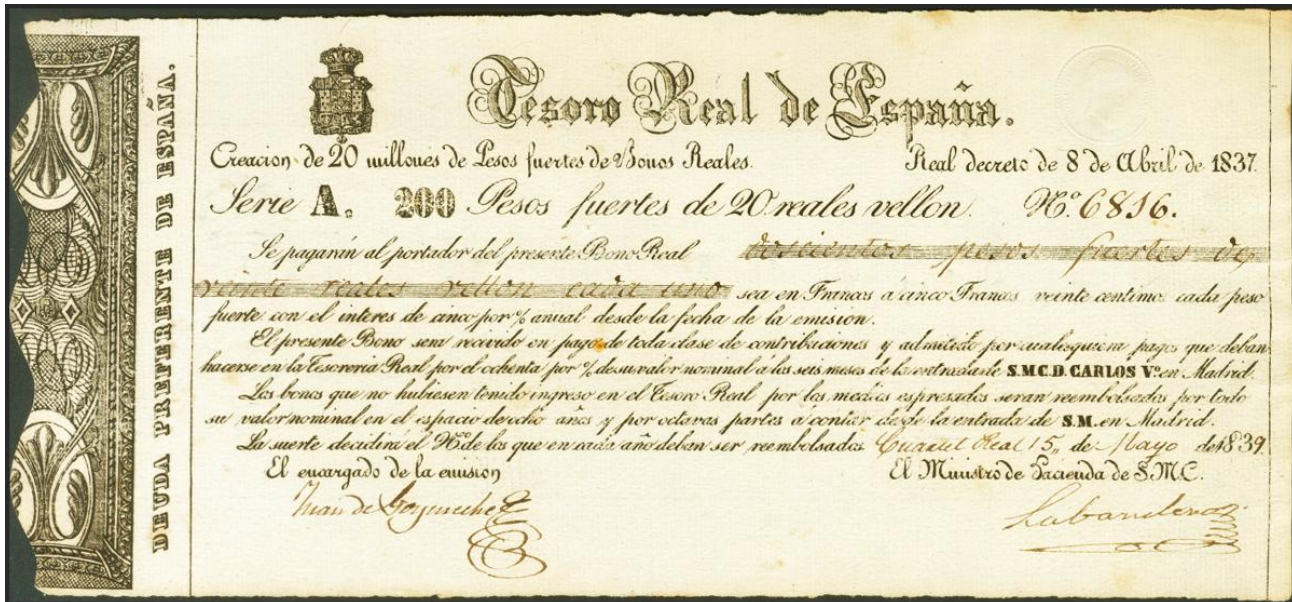 DEUDA PREFERENTE DE ESPAÑA.
Tesoro Real de España.
Creacion de 20 millones de Pesos fuertes de Bonos Reales. Real decreto de 8 de Abril de 1837.
Serie A. 200 Pesos fuertes de 20 reales vellon. Nº 6816.
Se pagarán al portador del presente Bono Real doscientos pesos fuertes de
veinte reales vellon cada uno sea en Francos á cinco Francos veinte centimos cada peso
fuerte con el interes de cinco por % anual desde la fecha de la emision.
El presente Bono sera recivido en pago de toda clase de contribuciones y admitido por cualesquiera pagos que deban
hacerse en la Tesoreria Real por el ochenta por % de su valor nominal á los seis meses de la entrada de S.M.C.D. CARLOS Vº en Madrid.
Los bonos que no hubiesen tenido ingreso en el Tesoro Real por los medios espresados seran reembolsados por todo
su valor nominal en el espacio de ocho años y por octavas partes á contar desde la entrada de S.M. en Madrid.
La suerte decidira el Nº de los que en cada año deban ser reembolsados. Cuartel Real 15 de Mayo de 1839.
El encargado de la emision El Ministro de Hacienda de S.M.C.
Juan de Goyeneche Labandero